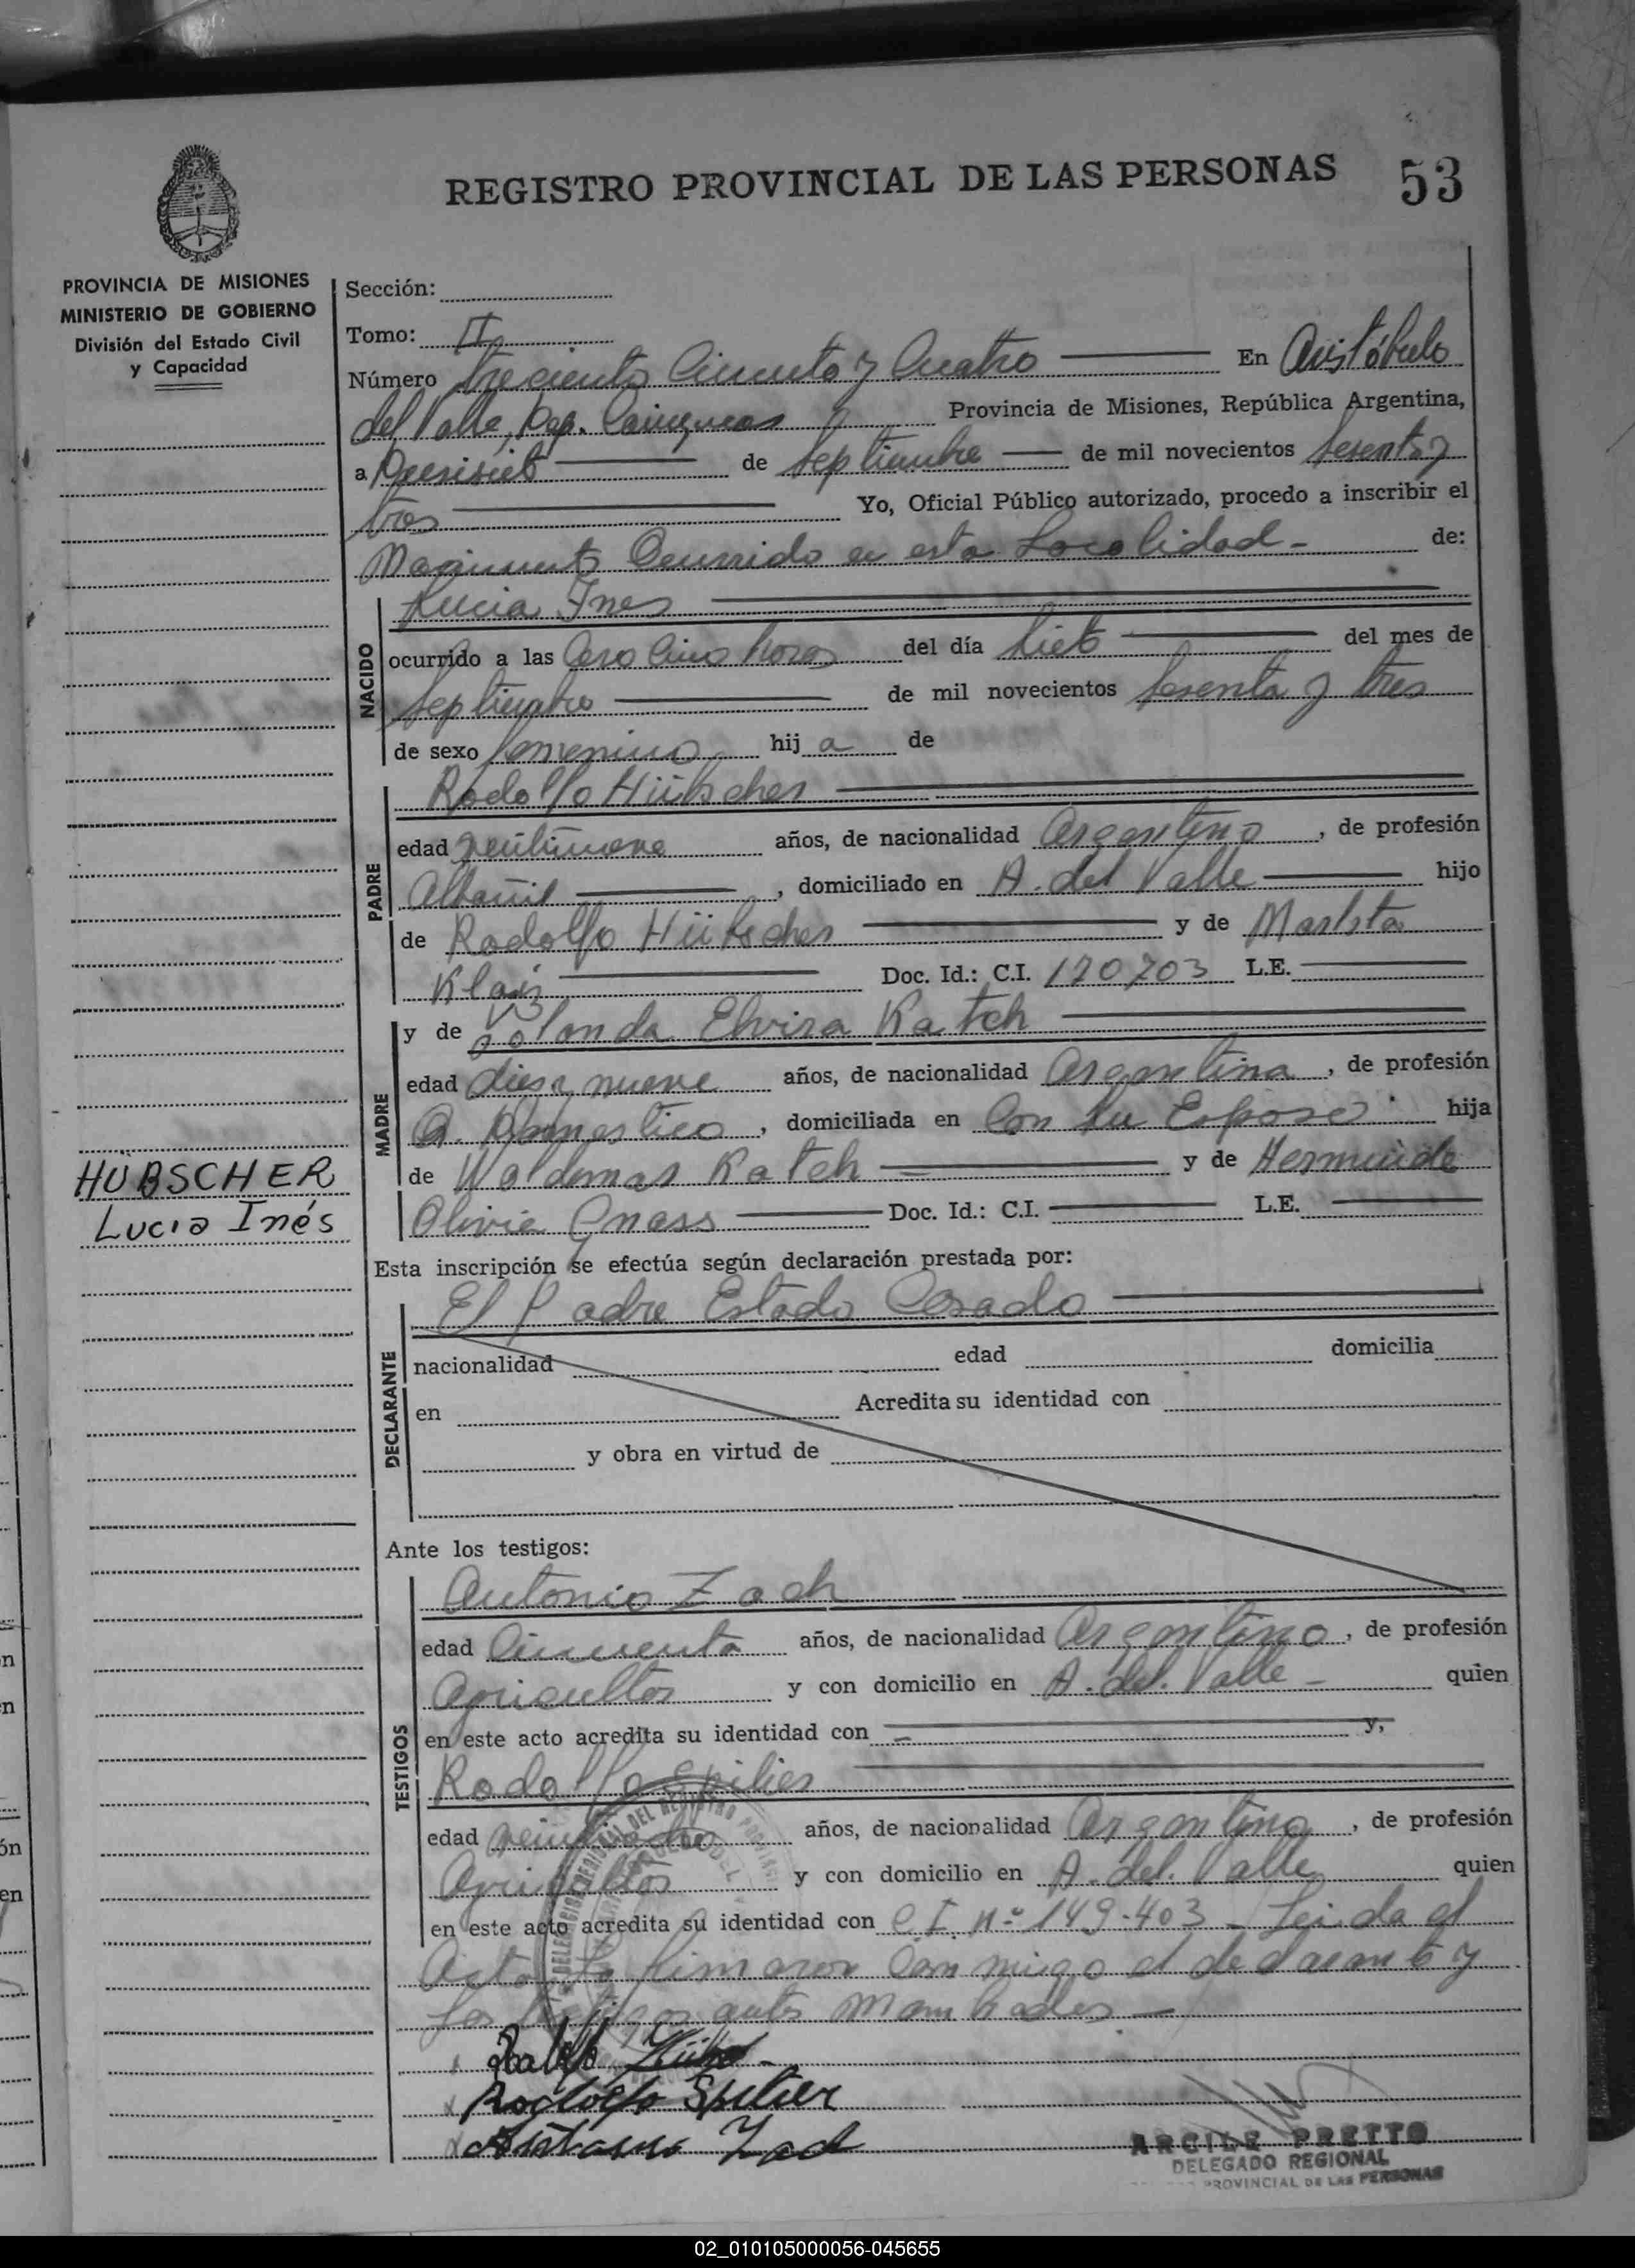 REGISTRO PROVINCIAL DE LAS PERSONAS 53
PROVINCIA DE MISIONES
MINISTERIO DE GOBIERNO
División del Estado Civil
y Capacidad
Sección:
Tomo: II
Número treciento Cincuenta y Cuatro En Aristóbulo
del Valle, Dep. Cainguas Provincia de Misiones, República Argentina,
a Diesisiete de Septiembre de mil novecientos Sesenta y
tres Yo, Oficial Público autorizado, procedo a inscribir el
Nacimiento Ocurrido en esta Localidad - de:
NACIDO
Lucia Ines
ocurrido a las Cero Cinco horas del día Siete del mes de
Septiembre de mil novecientos Sesenta y tres
de sexo femenino hij a de
PADRE
Rodolfo Hübscher
edad veintinueve años, de nacionalidad Argentino, de profesión
Albañil, domiciliado en A. del Valle hijo
de Rodolfo Hübscher y de
Doc. Id.: C.I. 120703 L.E.
MADRE
y de Yolanda Elvira Katch
edad dies y nueve años, de nacionalidad Argentina, de profesión
Q. Domestico, domiciliada en Con su Esposo hija
de Waldemar Katch y de
HÜBSCHER
Lucia Inés
Olivia Gnass Doc. Id.: C.I. L.E.
Esta inscripción se efectúa según declaración prestada por:
DECLARANTE
El Padre Estado Casado
nacionalidad edad domicilia
en Acredita su identidad con
y obra en virtud de
Ante los testigos:
TESTIGOS
Antonio Zach
edad Cincuenta años, de nacionalidad Argentino, de profesión
Agricultor y con domicilio en A. del. Valle - quien
en este acto acredita su identidad con - y,
Rodolfo Spilier
edad años, de nacionalidad Argentino, de profesión
Agricultor y con domicilio en A. del. Valle quien
en este acto acredita su identidad con C I. nº 149.403 - Leida el
Acta la firmaron Conmigo el declarante y
los testigos antes Mombrados -
Rodolfo Spilier
Antonio Zach
ARCILE PRETTO
DELEGADO REGIONAL
PROVINCIAL DE LAS PERSONAS
02_010105000056-045655